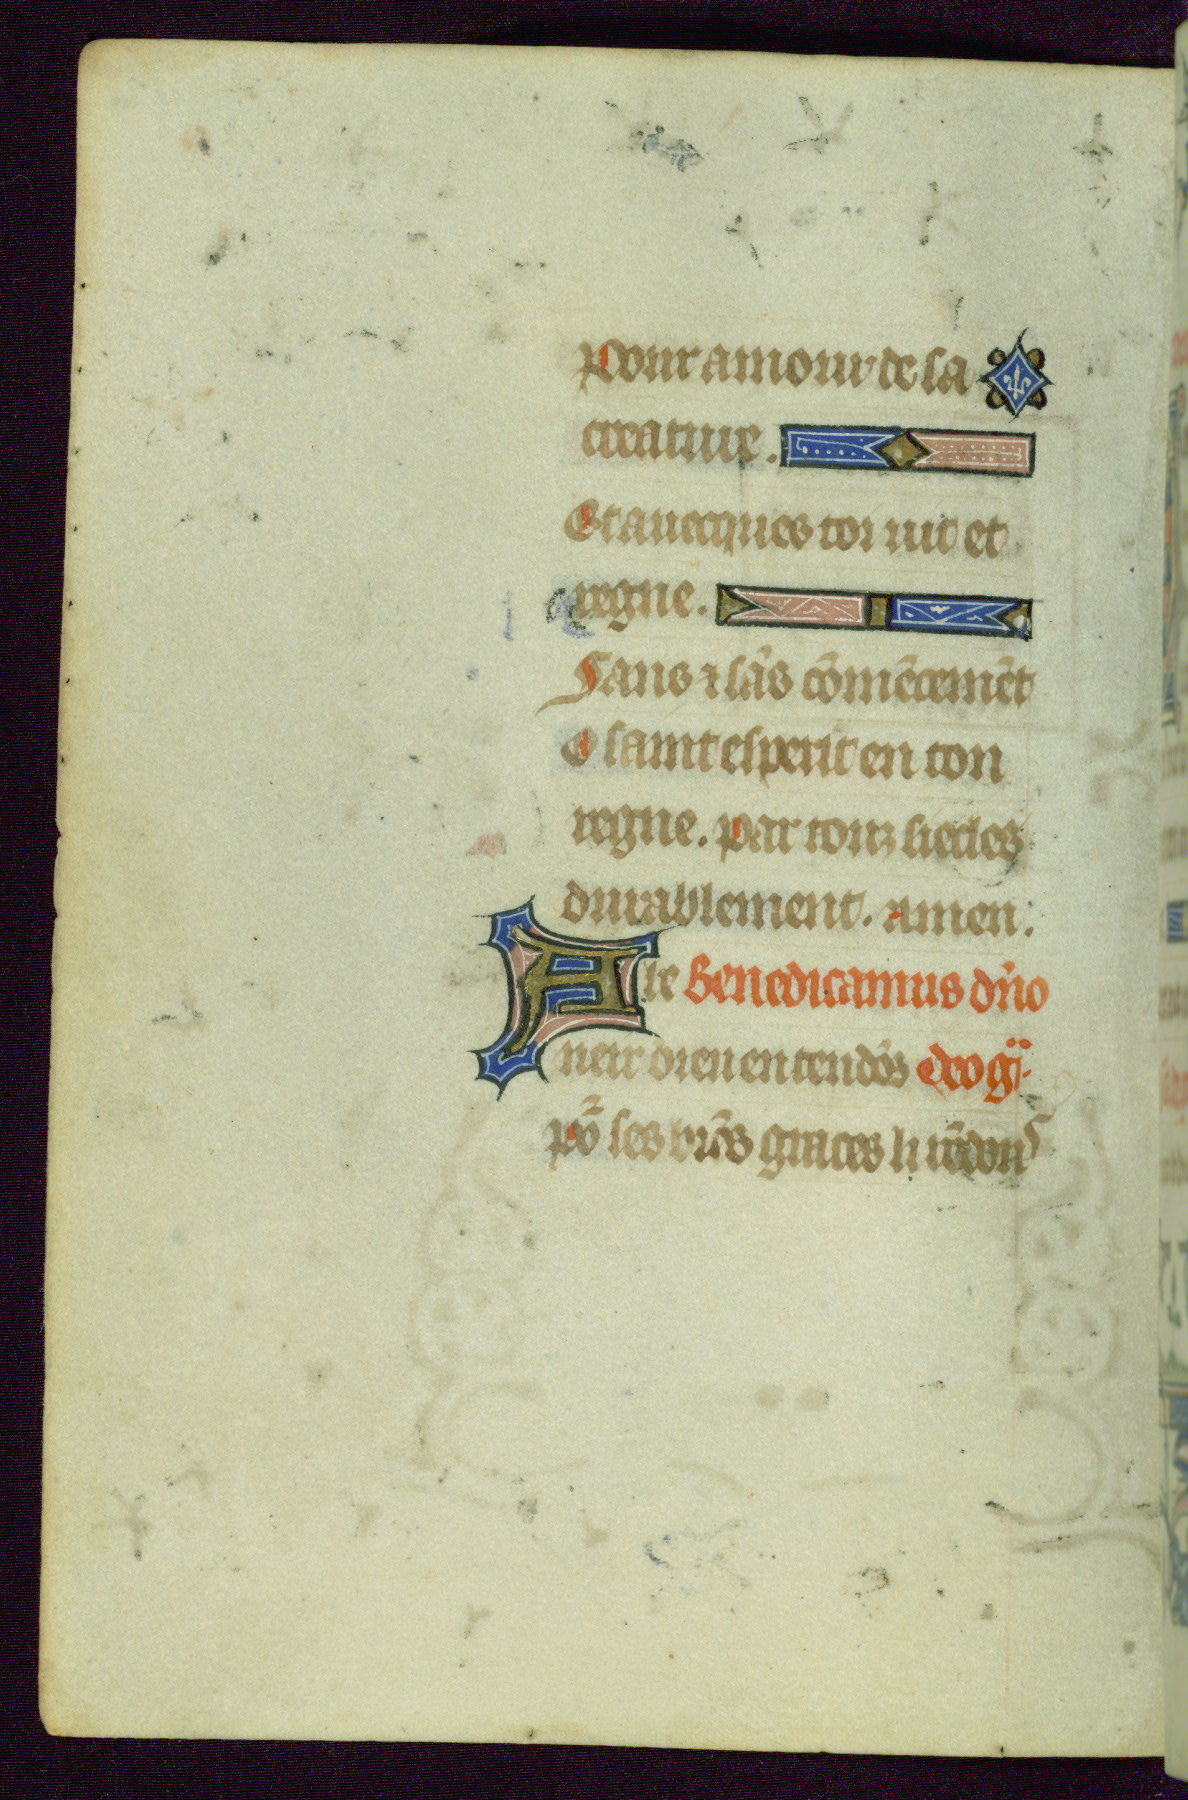 Pour amour de la
creature.
Et avecques toi vit et
regne.
Sans ⁊ sãs cõmẽcemẽt
O saint esperit en ton
regne. Par touz siecles
durablement. Amen.
A le Benedicamus dño
neir dieu entendõs Deo gr̃.
Põ ses graces li